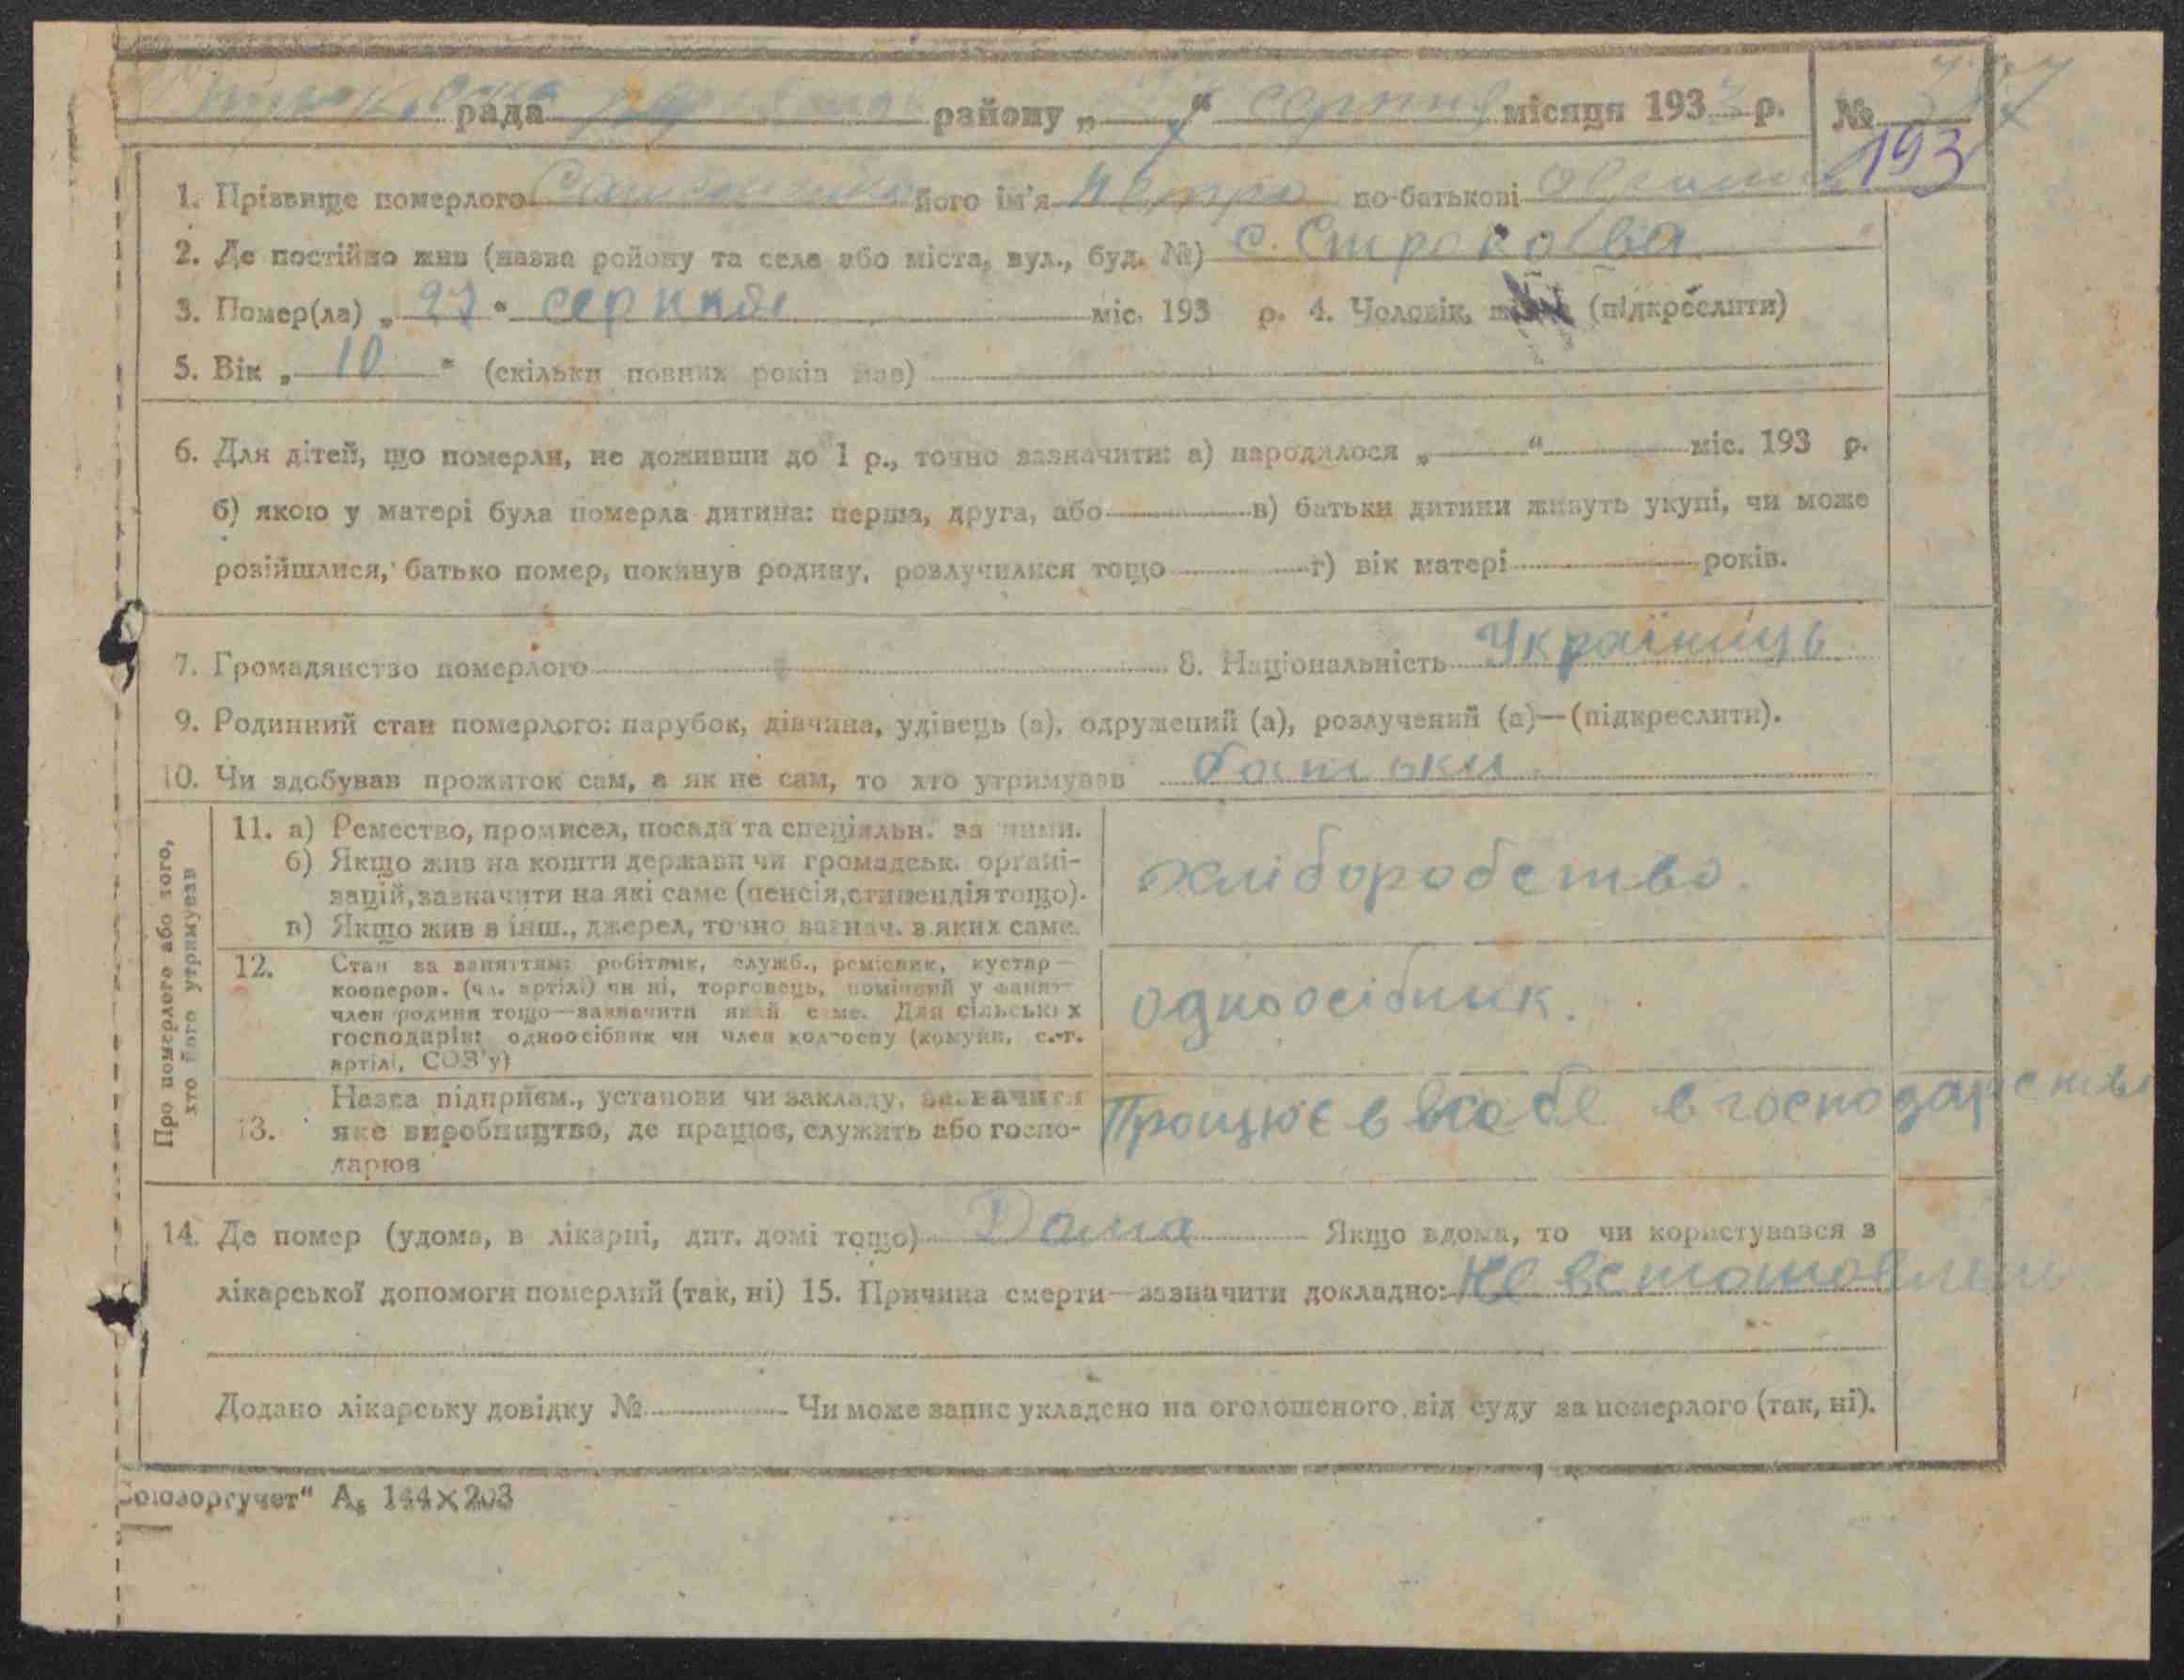 рада району „ “ серпня місяця 1933 р. №
193
1. Прізвище померлого його ім'я Петро по-батькові
2. Де постійно жив (назва району та села або міста, вул., буд. №) с. Строкова
3. Помер(ла) „ 27 “ серпня міс. 193 р. 4. Чоловік, (підкреслити)
5. Вік „ 10 “ (скільки повних років має)
6. Для дітей, що померли, не доживши до 1 р., точно зазначити: а) народилося „ “ міс. 193 р.
б) якою у матері була померла дитина: перша, друга, або в) батьки дитини живуть укупі, чи може
розійшлися, батько помер, покинув родину, розлучилися тощо г) вік матері років.
7. Громадянство померлого 8. Національність Україниць
9. Родинний стан померлого: парубок, дівчина, удівець (а), одружений (а), розлучений (а)—(підкреслити).
10. Чи здобував прожиток сам, а як не сам, то хто утримував батьки
Про померлого або того, хто його утримував
11. а) Ремество, промисел, посада та спеціяльн. за ними.
б) Якщо жив на кошти держави чи громадськ. органі-
зацій, зазначити на які саме (пенсія, стипендія тощо).
в) Якщо жив в інш., джерел, точно зазнач. з яких саме.
хліборобство.
12. Стан за заняттям: робітник, служб., ремісник, кустар—
кооперов. (чл. артілі) чи ні, торговець, помічний у занят.
член родини тощо—зазначити який саме. Для сільських
господарів: одноосібник чи член колгоспу (комуни, с.-г.
артілі, СОЗ'у)
одноосібник.
13. Назва підприєм., установи чи закладу, зазначити
яке виробництво, де працює, служить або госпо-
дарює
Працює в себе в господарстві
14. Де помер (удома, в лікарні, дит. домі тощо) Дома Якщо вдома, то чи користувався з
лікарської допомоги померлий (так, ні) 15. Причина смерти—зазначити докладно: Не
Додано лікарську довідку № Чи може запис укладено на оголошеного від суду за померлого (так, ні).
оюзоргучет“ А₅ 144×203